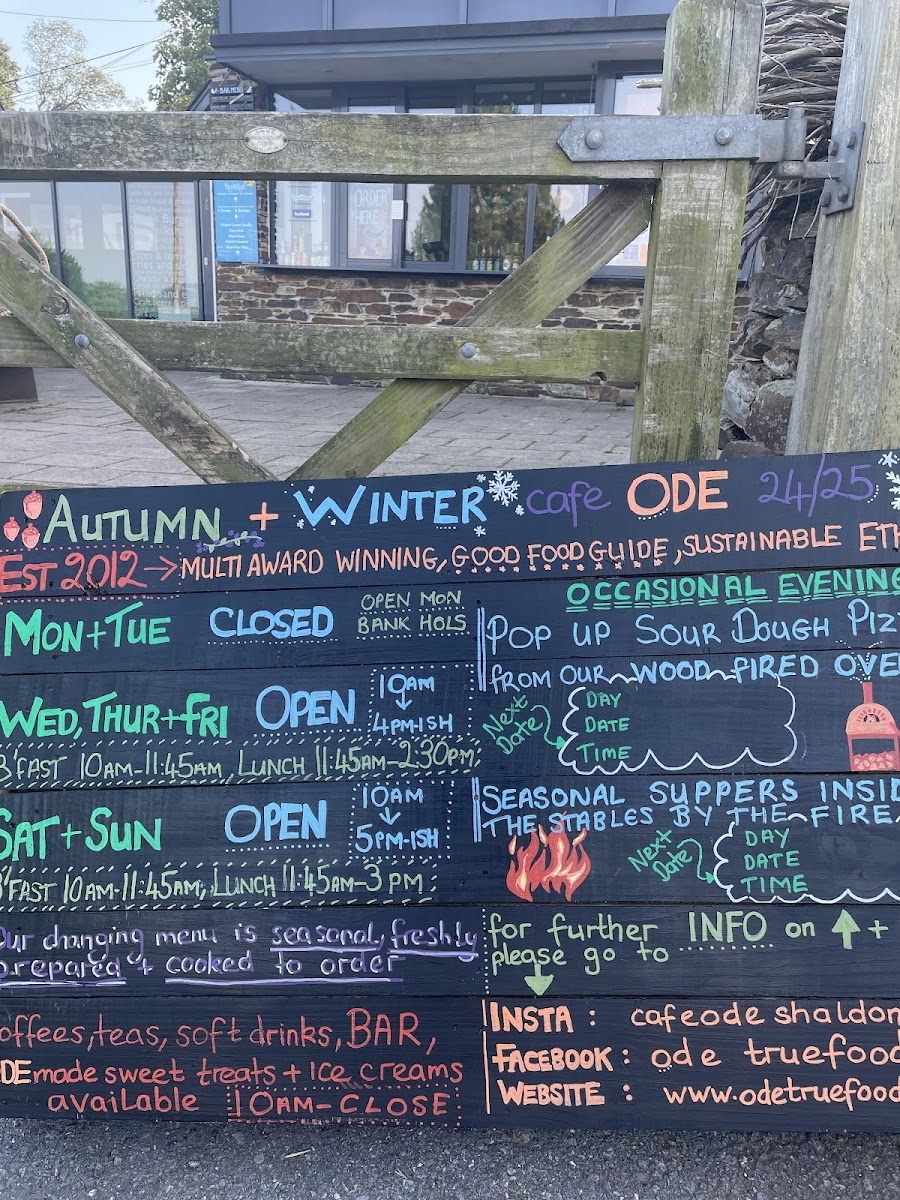 BAR MENU
ORDER HERE
facebook
AUTUMN + WINTER cafe ODE 24/25
EST 2012 → MULTI AWARD WINNING, GOOD FOOD GUIDE, SUSTAINABLE ETH
MON+TUE CLOSED OPEN MON BANK HOLS
WED, THUR+FRI OPEN 10AM ↓ 4PM-ISH
B'FAST 10AM-11:45AM, LUNCH 11:45AM-2:30PM,
SAT+SUN OPEN 10AM ↓ 5PM-ISH
B'FAST 10AM-11:45AM, LUNCH 11:45AM-3PM
Our changing menu is seasonal, freshly
prepared + cooked to order
coffees, teas, soft drinks, BAR,
ODE made sweet treats + ice creams
available 10AM-CLOSE
OCCASIONAL EVENING
POP UP SOUR DOUGH PIZ
FROM OUR WOOD-FIRED OVE
Next Date
DAY
DATE
TIME
SEASONAL SUPPERS INSID
THE STABLES BY THE FIRE
Next Date
DAY
DATE
TIME
for further INFO on ↑ +
please go to
↓
INSTA : cafeode shaldon
FACEBOOK : ode truefood
WEBSITE : www.odetruefood